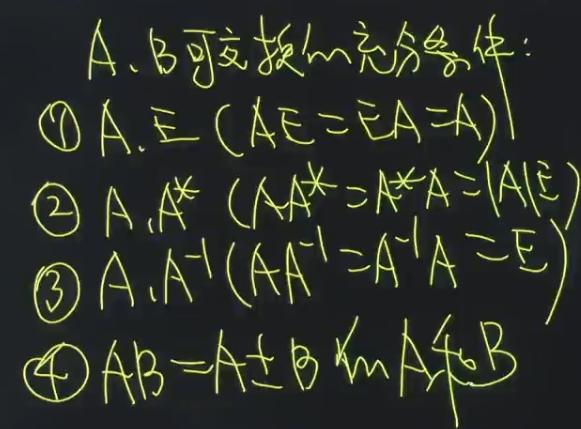 A、B可交换的充分条件:
① A、E (AE=EA=A)
② A、A* (AA*=A*A=|A|E)
③ A、A⁻¹ (AA⁻¹=A⁻¹A=E)
④ AB=A±B的A和B